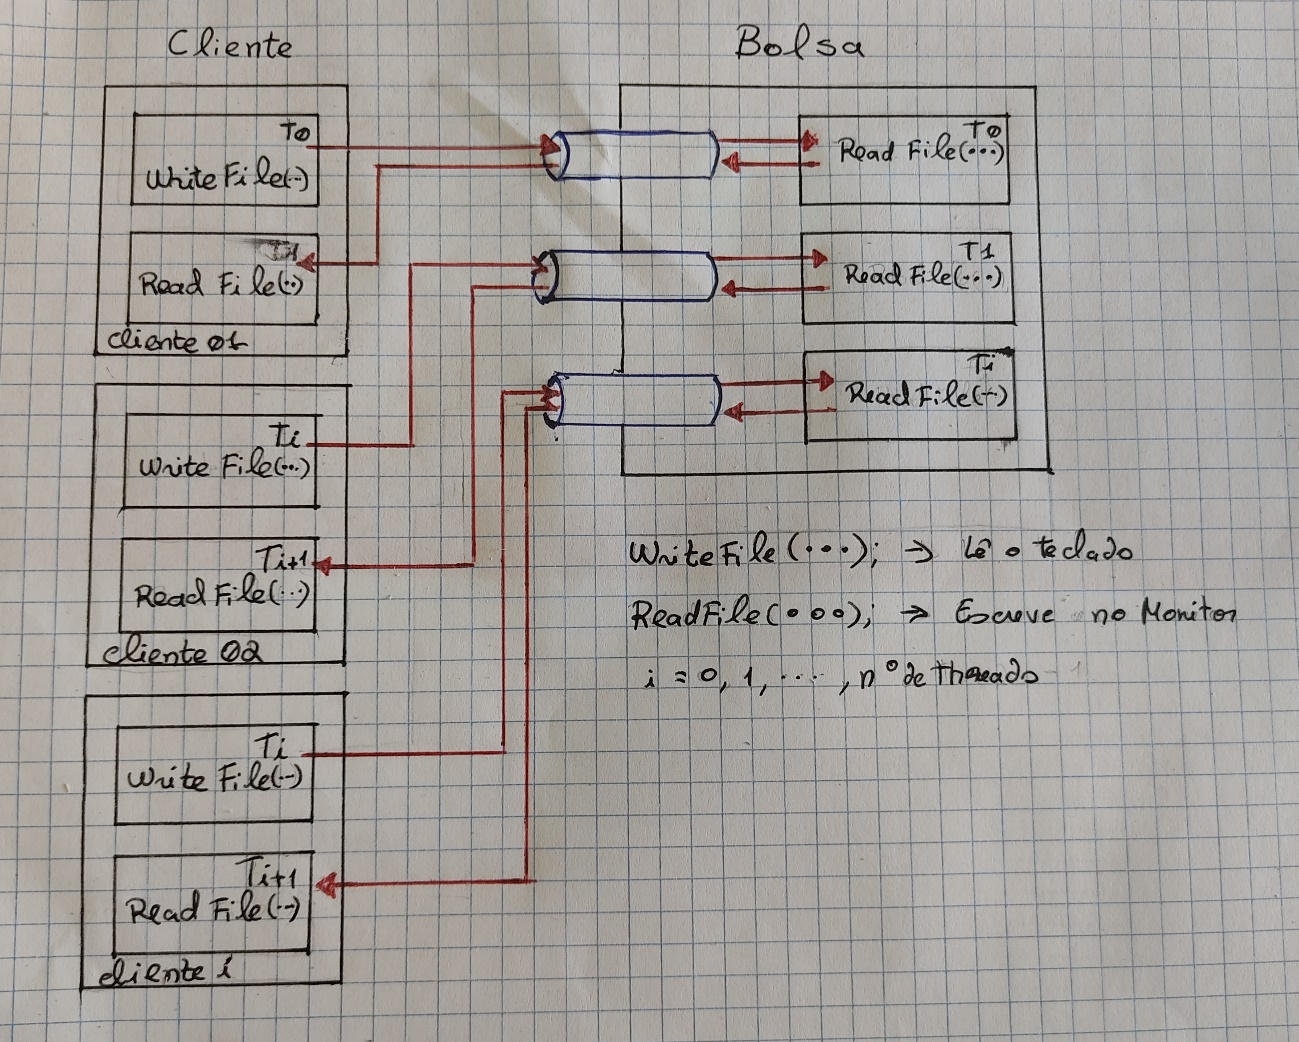 Cliente
Bolsa
T0
WriteFile(..)
T1
Read File(..)
cliente 01
Ti
Write File(...)
Ti+1
Read File(...)
cliente 02
Ti
Write File(..)
Ti+1
Read File(..)
cliente i
T0
Read File(...)
T1
Read File(...)
Ti
Read File(..)
WriteFile(...); → Lê o teclado
ReadFile(...); → Escreve no Monitor
i = 0, 1, ..., nº de threads